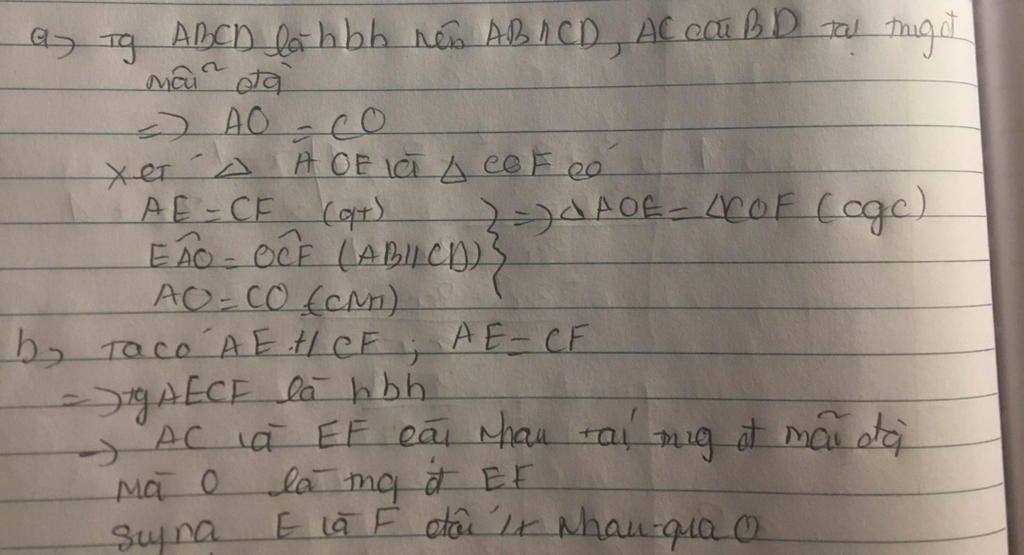 a) Tg ABCD là hbh nên AB//CD, AC cắt BD tại trug đ
mỗi đtg
=> AO = CO
Xét Δ AOE và Δ COF có
AE = CF (gt)
EÂO = OĈF (AB//CD) } => ΔAOE = ΔCOF (cgc)
AO = CO (cmn)
b) Ta có AE // CF ; AE = CF
=> tg AECF là hbh
-> AC và EF cắt nhau tại trug đ mỗi đtg
Mà O là trg đ EF
Suy ra E và F đối nhau qua O